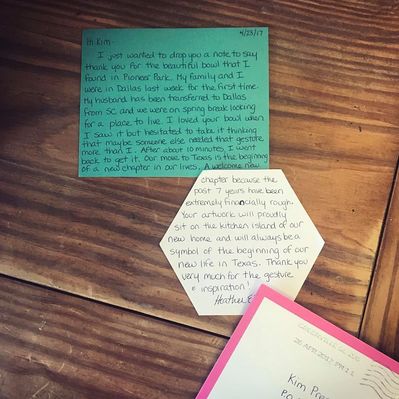 4/23/17
Hi Kim-
I just wanted to drop you a note to say
thank you for the beautiful bowl that I
found in Pioneer Park. My family and I
were in Dallas last week for the first time.
My husband has been transferred to Dallas
from SC and we were on spring break looking
for a place to live. I loved your bowl when
I saw it but hesitated to take it thinking
that maybe someone else needed that gesture
more than I. After about 10 minutes, I went
back to get it. Our move to Texas is the beginning
of a new chapter in our lives. A welcome new
chapter because the
past 7 years have been
extremely financially rough.
Your artwork will proudly
sit on the kitchen island of our
new home and will always be a
symbol of the beginning of our
new life in Texas. Thank you
very much for the gesture
& inspiration!
Heather
26 APR 2017 PM
Kim
P.O.